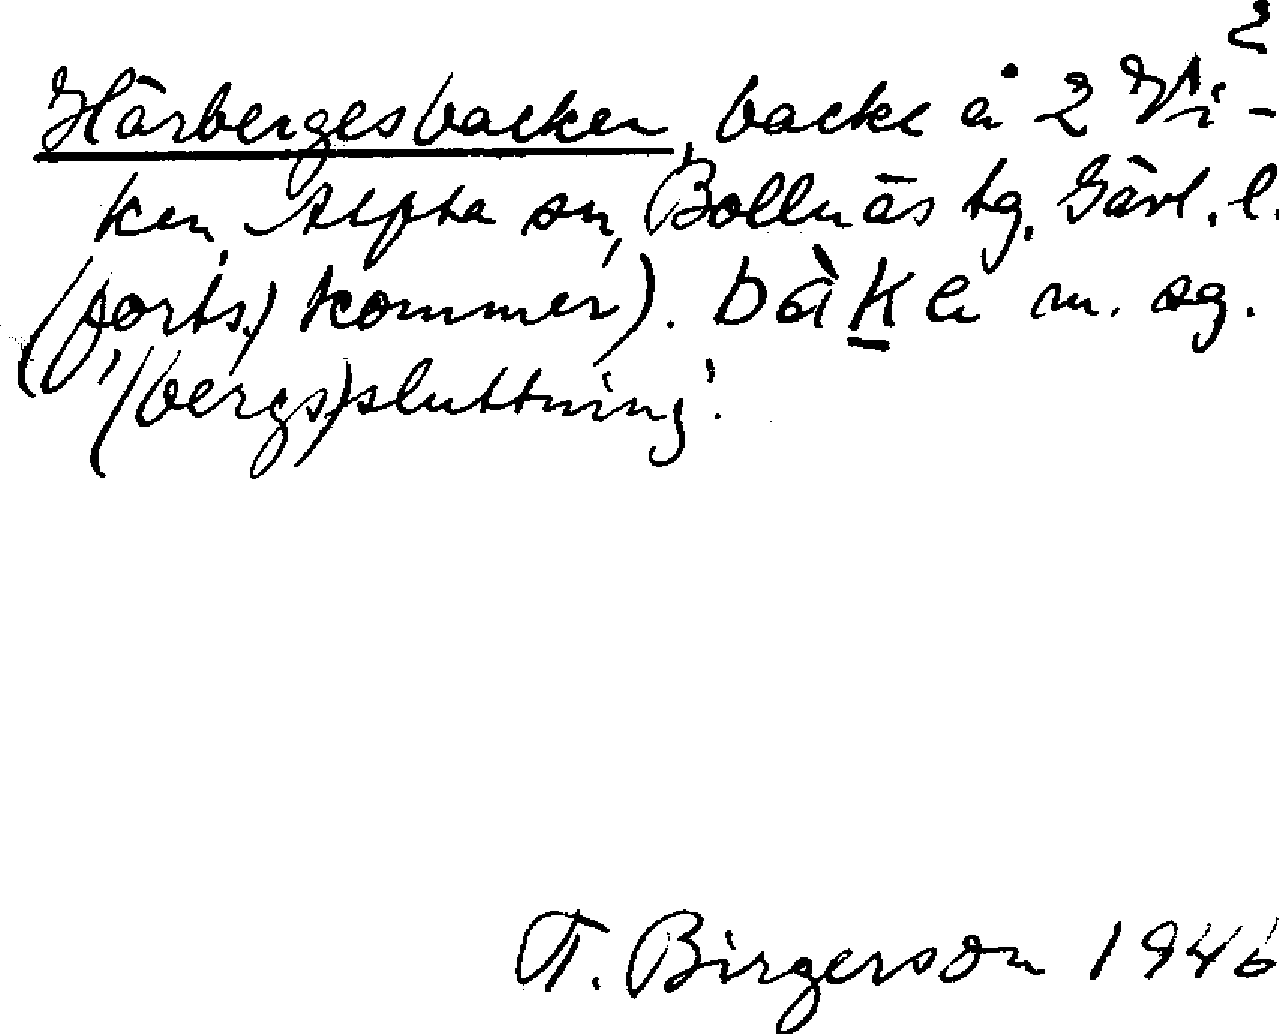 2
Härbergesbacken, backe å 2 Vi-
ken, Alfta sn, Bollnäs tg, Gävl. l.
(forts. kommer). bàka m. sg.
'(bergs)sluttning'.
T. Birgerson 1946